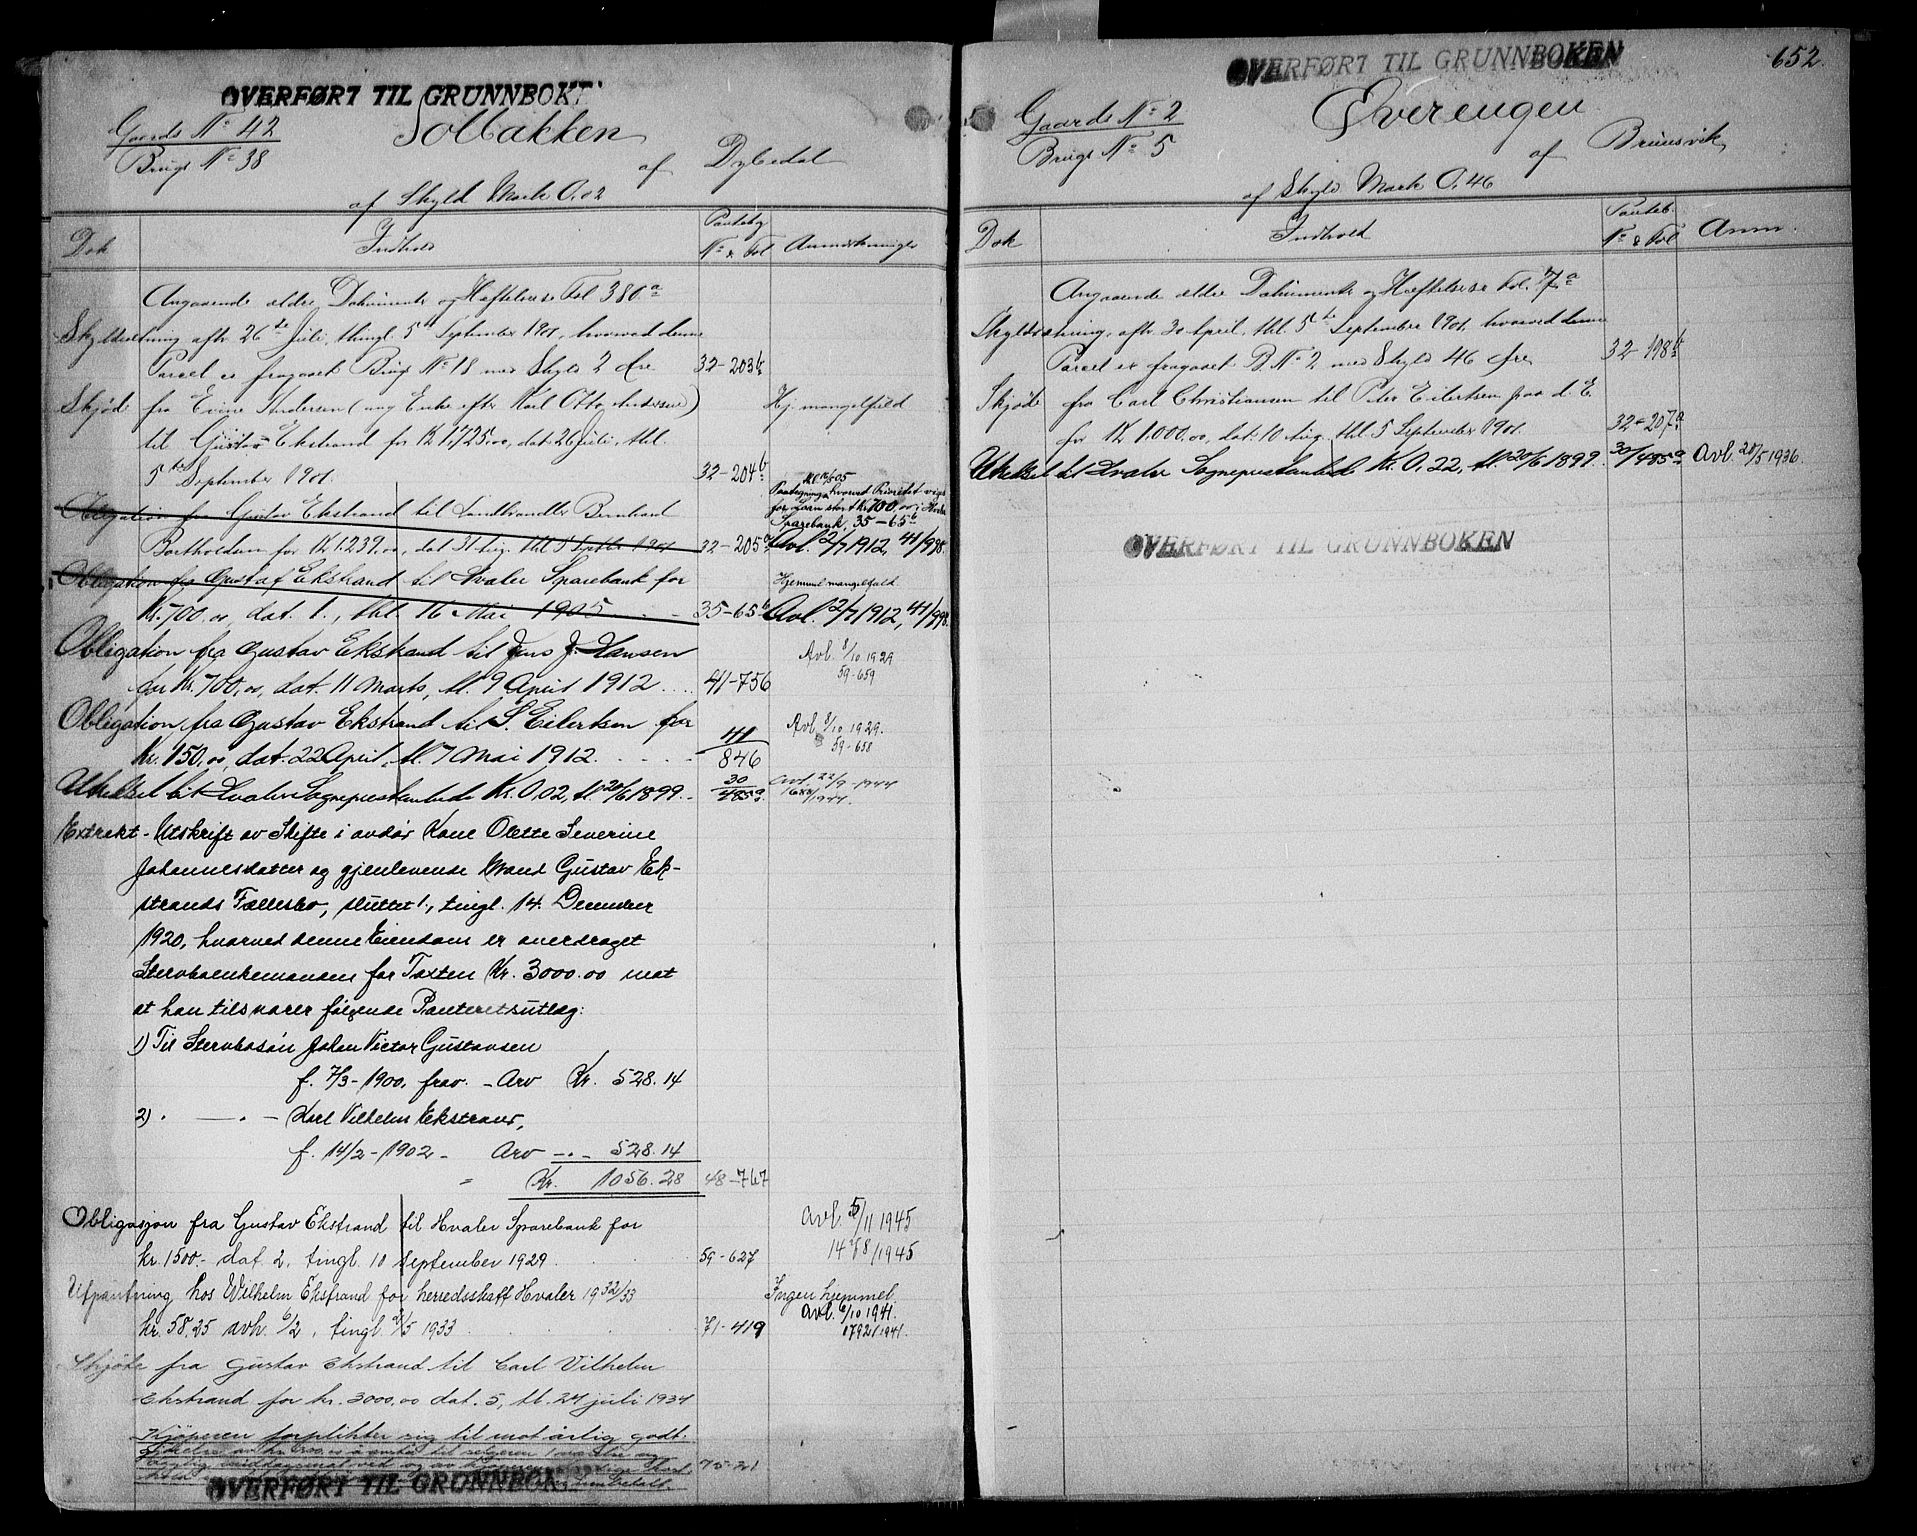 OVERFØRT TIL GRUNNBOKE
Gaards No 42
Solbakken
Brugs No 38
af Dybedal
af Skyld Mark 0.02
Dok
Indhold
Pantebog
No & Fol
Anmerkninger
Angaaende eldre Dokumenter og Heftelser se Fol 380a
Skyldsetning afh 26de Juli, thingl. 5te September 1901, hvorved denne
Parcel er fragaaet Brugs No 18 med Skyld 2 Øre 32-203b
Skjøde fra Andersen (ug Enke efter Karl Otto Andersen) Hj. mangelfuld
til Gustav Ekstrand for Kr 1,725.00, dat. 26 Juli, thl.
5te September 1901. 32-204b
Obligation fra Gustav Ekstrand til Landhandler Bernhard
Bartholdsen for Kr 1239.00, dat 31 Aug. thl 5 Septbr 1901 32-205a
hvorved Prioritet viges
for Laan stort Kr. 700.00 i Hvaler
Sparebank, 35-65b
Avl. 2/7 1912, 41/998.
Obligation fra Gustaf Ekstrand til Hvaler Sparebank for
Kr. 700.00, dat. 1., thl. 16 Mai 1905 35-65b
Hjemmel mangelfuld.
Avl. 2/7 1912, 41/998.
Obligation fra Gustav Ekstrand til Jens J. Hansen
for Kr. 700.00, dat. 11 Marts, tl. 9 April 1912 .... 41-756
Avl. 8/10 1929
59-659
Obligation fra Gustav Ekstrand til S. Eilertsen for
Kr. 150.00, dat. 22 April, tl. 7 Mai 1912. 41/846
Avl. 8/10 1929.
59-658
Utheksel til Hvaler Sogneprestembede Kr. 0,02, tl. 20/6 1899. 30/485a
Avl. 22/9-1944
Extrakt-Utskrift av Skifte i avdør Kone Olette Severine
Johannesdatter og gjenlevende Mand Gustav Ek-
strands Fællesbo, sluttet 1., tingl. 14. December
1920, hvorved denne Eiendom er overdraget
Stervboenkemanden for Taxten Kr. 3000.00 mot
at han tilsvarer følgende Panteretsutlæg:
1) Til Stervbosøn Johan Victor Gustavsen
f. 7/3-1900, frav. - Arv Kr. 528.14
2) " — " — Karl Vilhelm Ekstrand,
f. 14/2-1902 - Arv -"- 528.14
Kr. 1056.28 48-767
Obligasjon fra Gustav Ekstrand til Hvaler Sparebank for
kr. 1500.- dat. 2. tingl. 10 september 1929 59-627
Avl. 5/11 1945
1478/1945
Utpantning hos Wilhelm Ekstrand for herredskass Hvaler 1932/33
kr. 58,25 avh. 6/2, tingl 2/5 1933 71-419
Ingen hjemmel
Avl. 6/10 1941.
1792/1941.
Skjøte fra Gustav Ekstrand til Carl Vilhelm
Ekstrand for kr. 3000,00 dat. 5, tl. 24 juli 1934
Kjøperen forplikter sig til mot årlig godt-
75-21
OVERFØRT TIL GRUNNBOK
652.
OVERFØRT TIL GRUNNBOKEN
Gaards No 2
Øverengen
Brugs No 5
af Brunsvik
af Skyld Mark 0.46
Dok
Indhold
Panteb.
No & Fol
Anm.
Angaaende eldre Dokumenter og Heftelser se Fol. 7a
Skyldsetning, afh 30 April, thl. 5te September 1901, hvorved denne
Parcel er fragaaet B. No 2 med Skyld 46 Øre 32-198b
Skjøde fra Carl Christiansen til Peter Eilertsen paa d. E.
for Kr 1,000.00, dat. 10 Aug. thl. 5 September 1901. 32-207a
Utheksel til Hvaler Sogneprestembede Kr. 0,22, tl. 20/6 1899. 30/485a Avl. 20/5 1936
OVERFØRT TIL GRUNNBOKEN